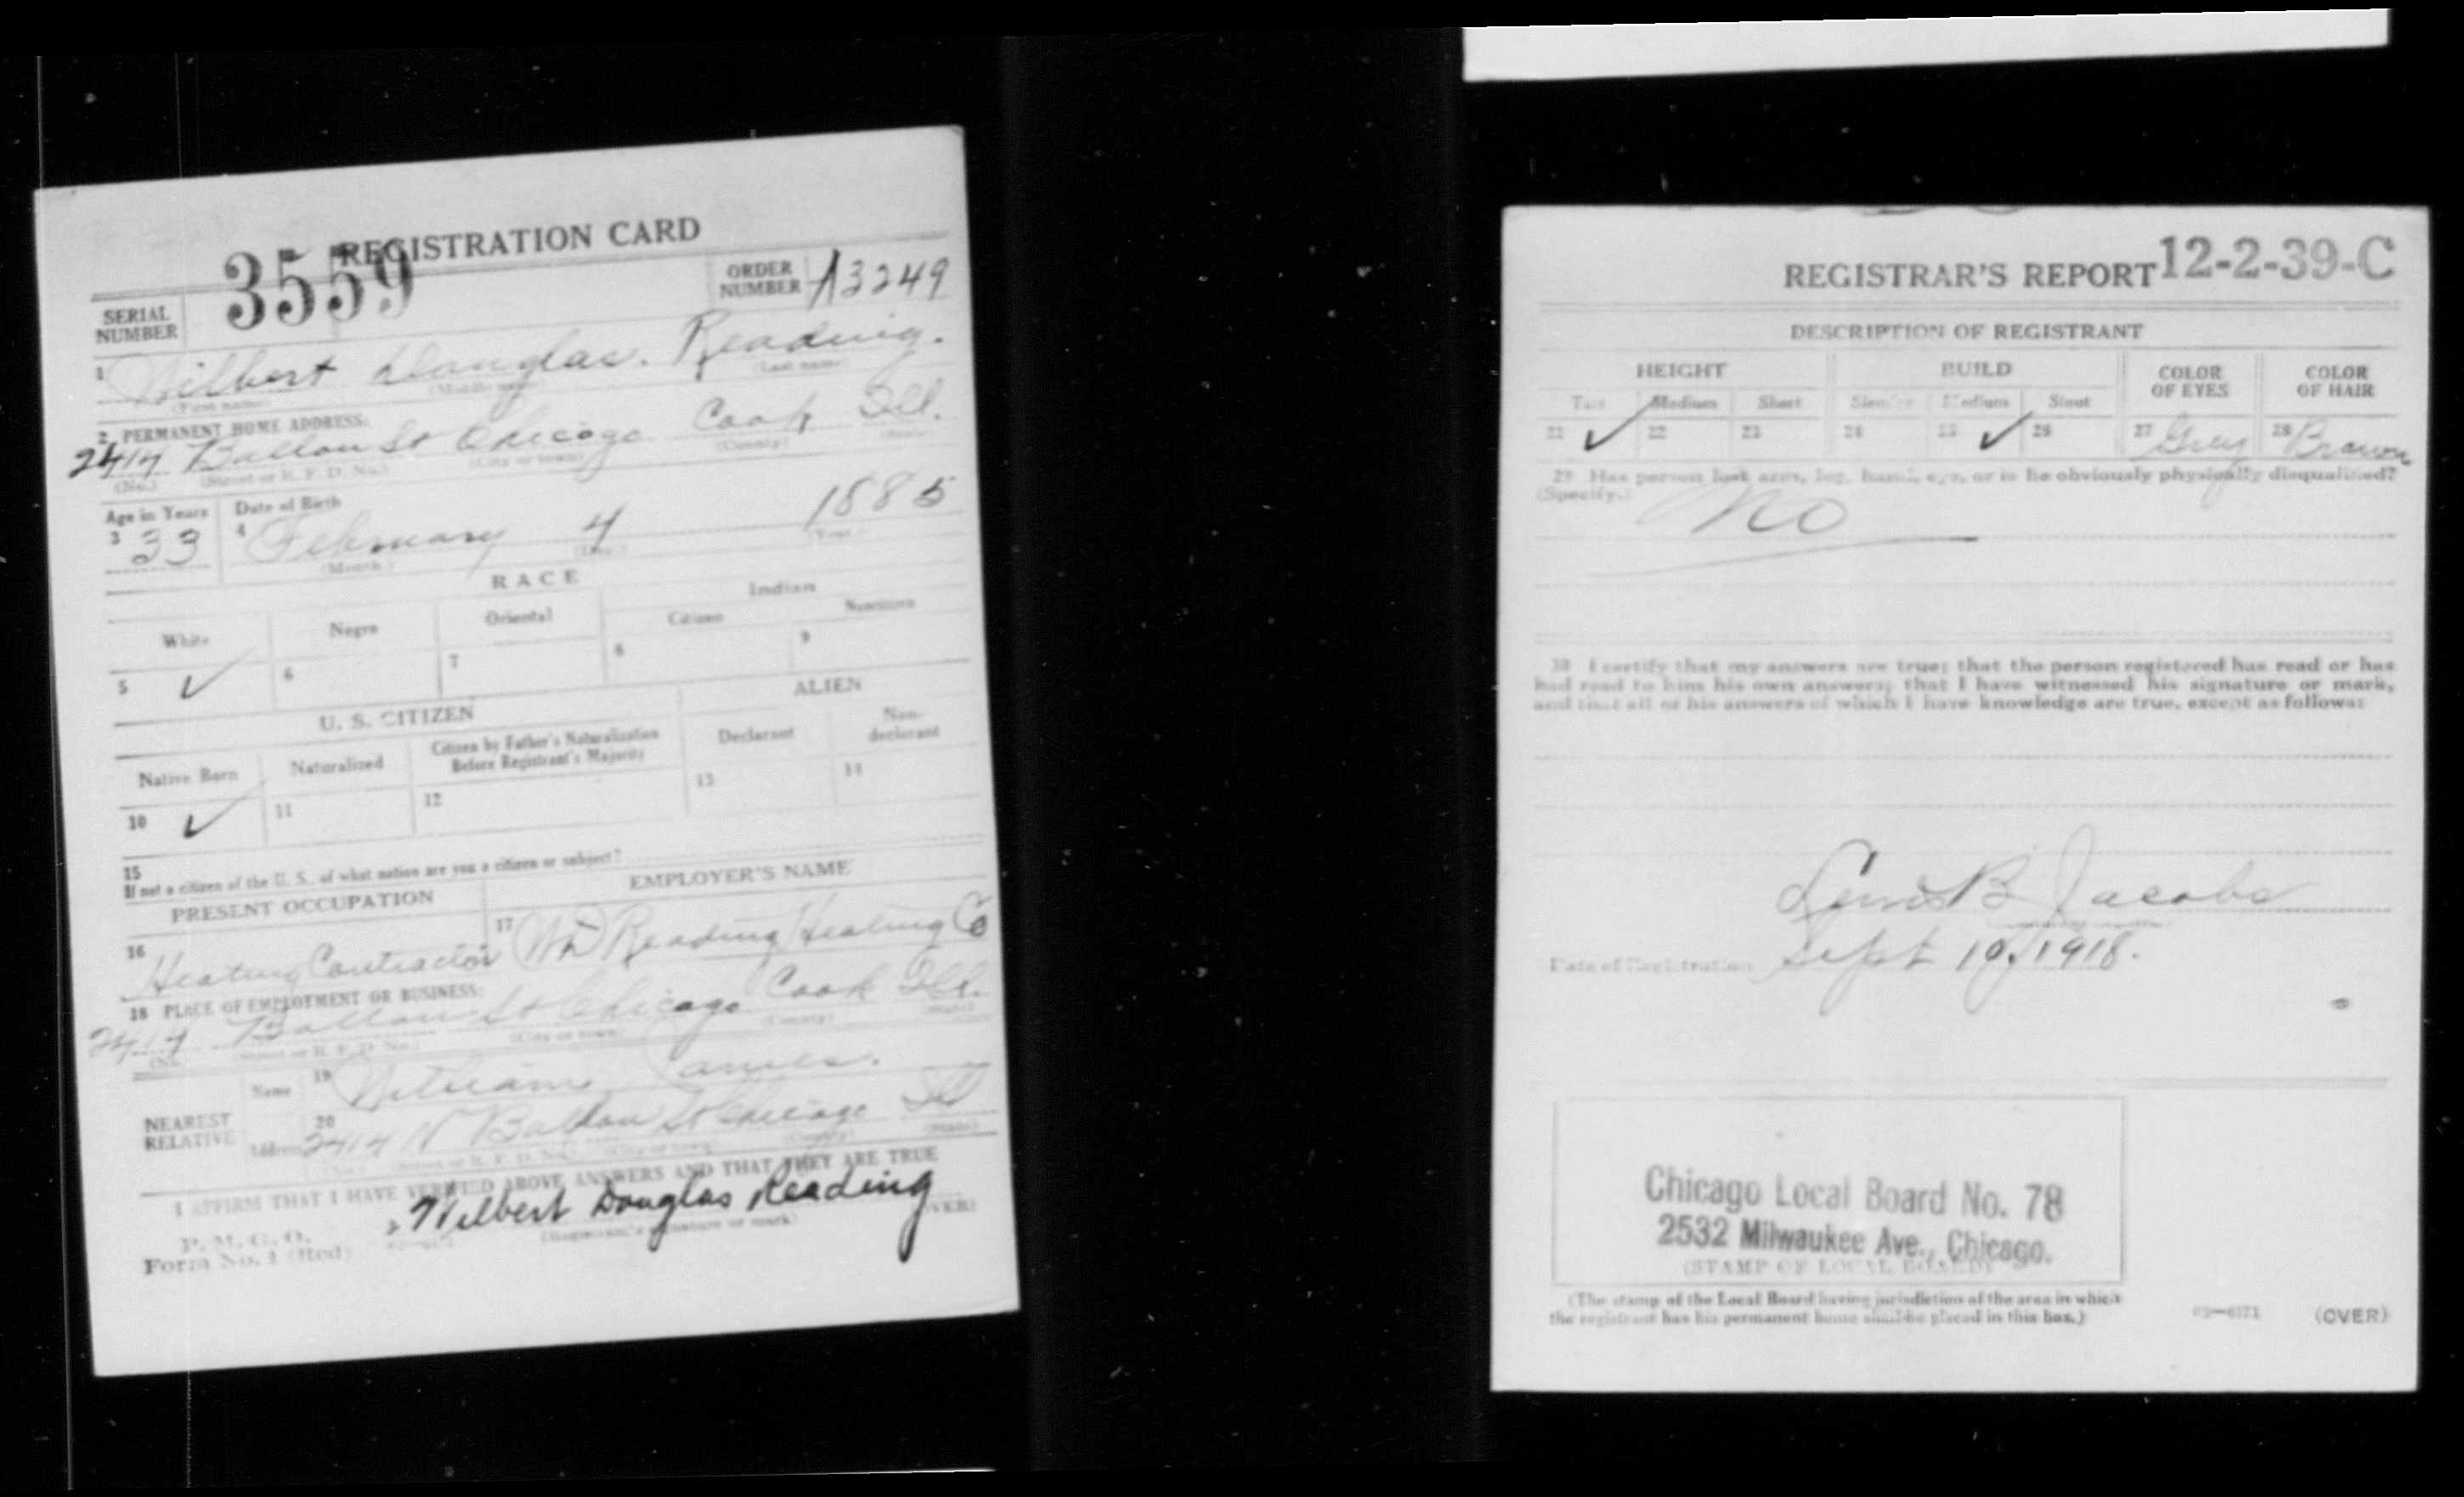 REGISTRATION CARD
SERIAL NUMBER 3559 ORDER NUMBER A3249
1 Wilbert Douglas. Reading.
(First name) (Middle name) (Last name)
2 PERMANENT HOME ADDRESS:
2414 St Chicago Cook Ill.
(No.) (Street or R. F. D. No.) (City or town) (County) (State)
Age in Years Date of Birth
3 33 4 February 4 1885
(Month.) (Day.) (Year.)
RACE
White Negro Oriental Indian
Citizen Noncitizen
5 ✓ 6 7 8 9
U. S. CITIZEN ALIEN
Native Born Naturalized Citizen by Father's Naturalization Before Registrant's Majority Declarant Non-declarant
10 ✓ 11 12 13 14
15
If not a citizen of the U. S., of what nation are you a citizen or subject?
PRESENT OCCUPATION EMPLOYER'S NAME
16 Heating Contractor 17 WD Reading Heating Co
18 PLACE OF EMPLOYMENT OR BUSINESS:
2414 St Chicago Cook Ill.
(No.) (Street or R. F. D. No.) (City or town) (County) (State)
NEAREST RELATIVE Name 19 William
Address 20 2414 N St Chicago Ill
(No.) (Street or R. F. D. No.) (City or town) (County) (State)
I AFFIRM THAT I HAVE VERIFIED ABOVE ANSWERS AND THAT THEY ARE TRUE
P. M. G. O.
Form No. 1 (Red) Wilbert Douglas Reading (OVER)
(Registrant's signature or mark)
REGISTRAR'S REPORT 12-2-39-C
DESCRIPTION OF REGISTRANT
HEIGHT BUILD COLOR OF EYES COLOR OF HAIR
Tall Medium Short Slender Medium Stout
21 ✓ 22 23 24 25 ✓ 26 27 Grey 28 Brown
29 Has person lost arm, leg, hand, eye, or is he obviously physically disqualified?
(Specify.) No
30 I certify that my answers are true; that the person registered has read or has
had read to him his own answers; that I have witnessed his signature or mark,
and that all of his answers of which I have knowledge are true, except as follows:
B Jacobs
Date of Registration Sept 1918.
Chicago Local Board No. 78
2532 Milwaukee Ave., Chicago.
(STAMP OF LOCAL BOARD)
(The stamp of the Local Board having jurisdiction of the area in which
the registrant has his permanent home shall be placed in this box.)
03—6171 (OVER)